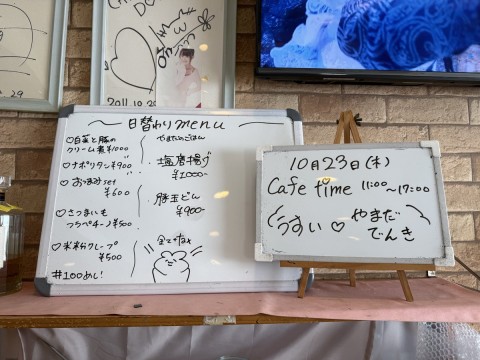 2011.10.29
日替わりmenu
♡白菜と豚の
クリーム煮¥1000
♡ナポリタン¥900
♡おつまみset
¥600
♡さつまいも
¥500
♡米粉クレープ
¥500
#100めし!
やまだのごはん
塩唐揚げ
¥1000
豚玉どん
¥900
10月23日(木)
Cafe time 11:00
~17:00
うすい♡やまだ
でんき